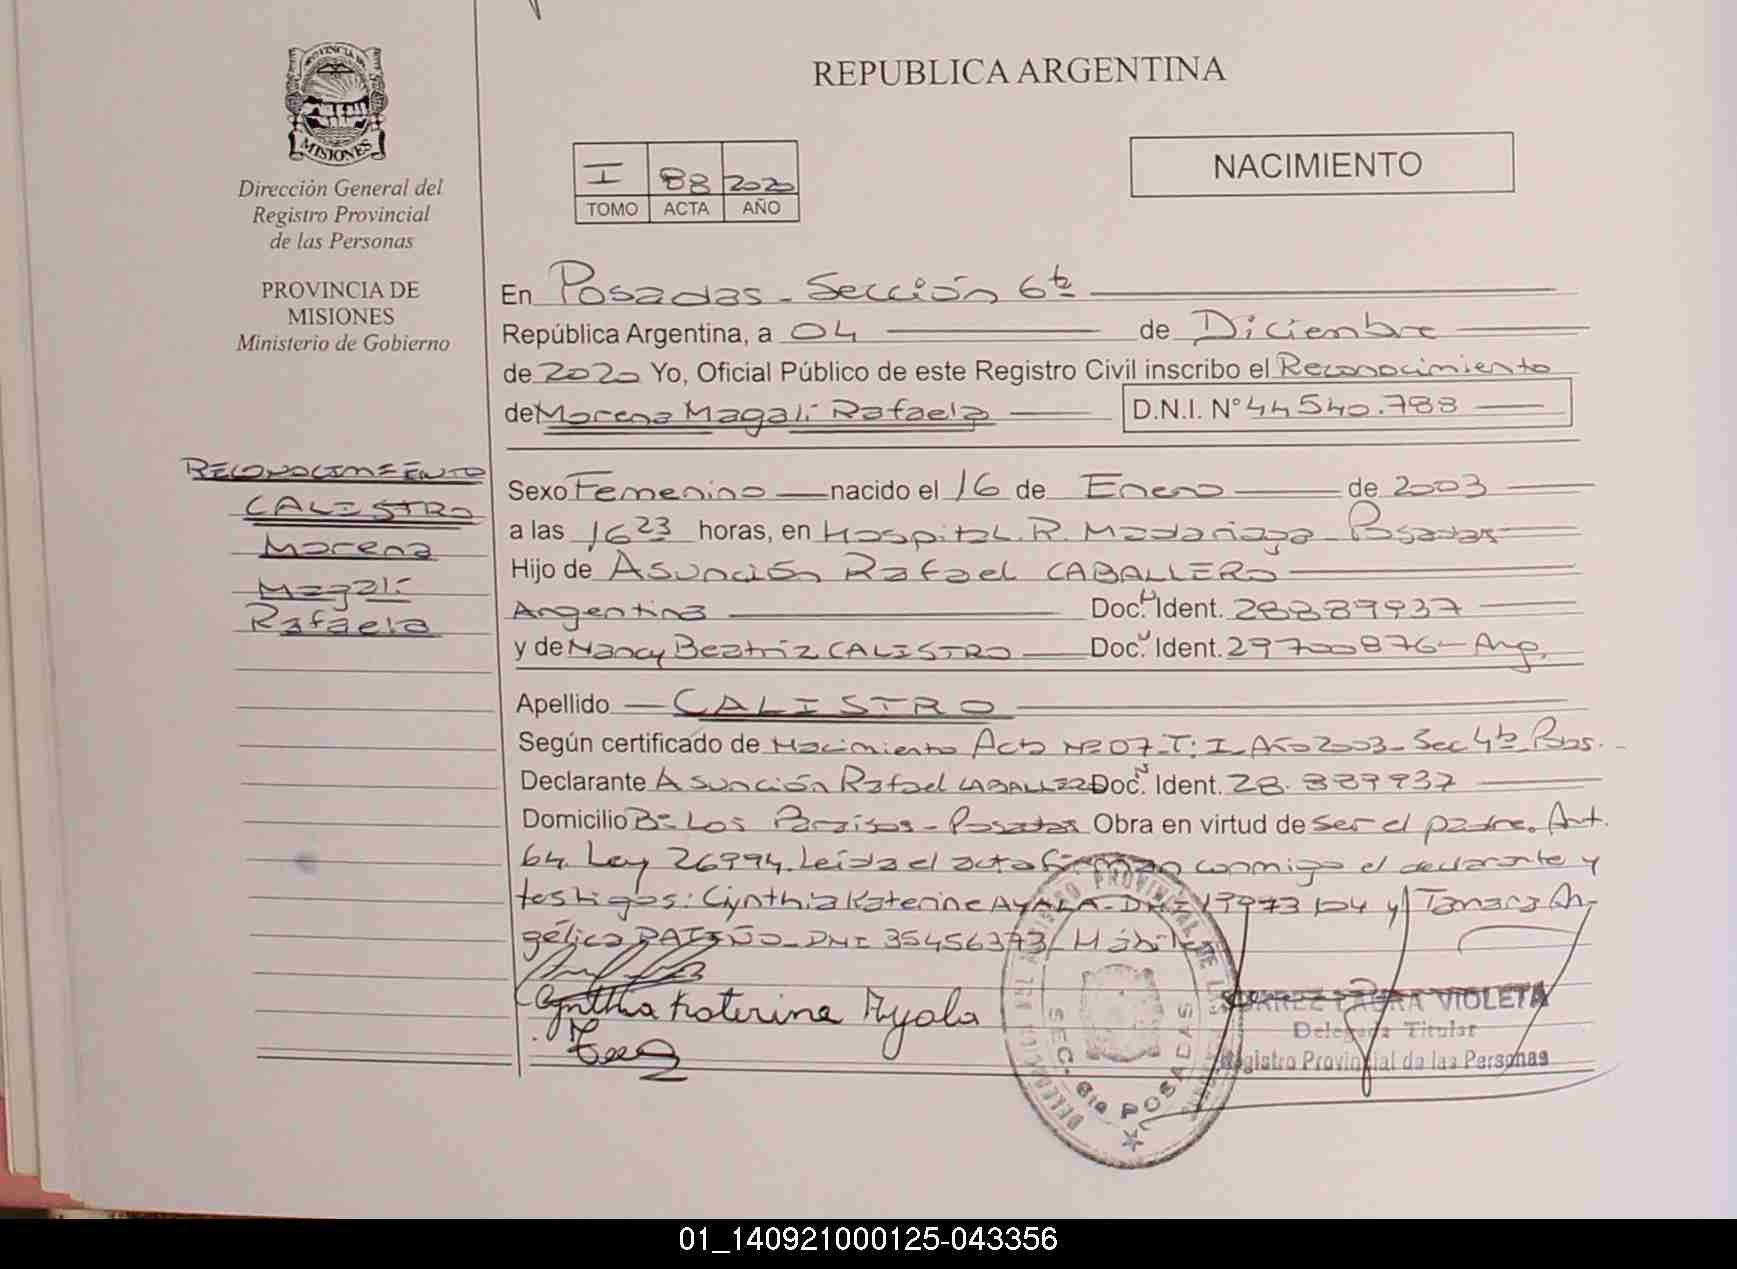 PROVINCIA DE
MISIONES
Dirección General del
Registro Provincial
de las Personas
PROVINCIA DE
MISIONES
Ministerio de Gobierno
RECONOCIMIENTO
CALISTRO
Morena
Magalí
Rafaela
REPUBLICA ARGENTINA
I 88 2020
TOMO ACTA AÑO
NACIMIENTO
En Posadas - Sección 6ta
República Argentina, a 04 de Diciembre
de 2020 Yo, Oficial Público de este Registro Civil inscribo el Reconocimiento
de Morena Magalí Rafaela D.N.I. Nº 44540.788
Sexo Femenino nacido el 16 de Enero de 2003
a las 16 23 horas, en Hospital. R. Madariaga - Posadas
Hijo de Asunción Rafael CABALLERO
Argentina Doc. Ident. 28889937
y de Nancy Beatriz CALISTRO Doc. Ident. 29700876 - Arg.
Apellido CALISTRO
Según certificado de Nacimiento Acta Nº 07 - T: I - Año 2003 - Sec 4ta Pdas.
Declarante Asunción Rafael CABALLERO Doc. Ident. 28.889937
Domicilio Bº Los Paraisos - Posadas Obra en virtud de ser el padre. Art.
64. Ley 26994. Leída el acta firman conmigo el declarante y
testigos: Cynthia Katerine AYALA - DNI y Tamara An-
gélica PATIÑO - DNI 35456373/ Hábiles
Cynthia Katerine Ayala
SUAREZ LAURA VIOLETA
Delegada Titular
Registro Provincial de las Personas
SEC. 6ta POSADAS
01_140921000125-043356